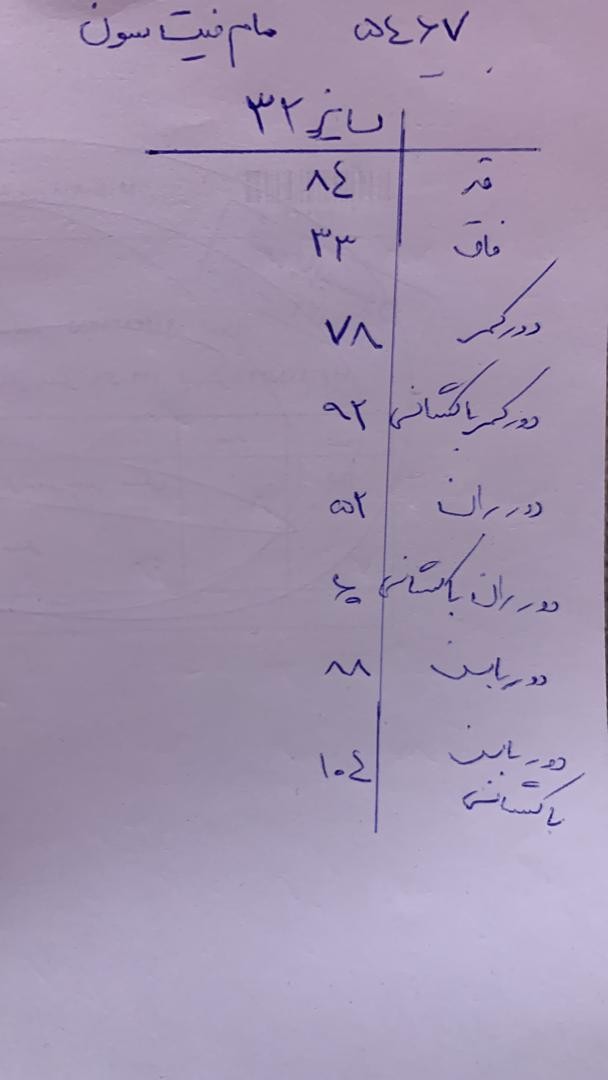 ۵٤۶۷ مام فیت سون
سایز ۳۲
قد ۸٤
فاق ۳۳
دور کمر ۷۸
دور کمر با کشسانی ۹۲
دور ران ۵۲
دور ران با کشسانی ۶۰
دور باسن ۸۸
دور باسن ۱۰٤
با کشسانی